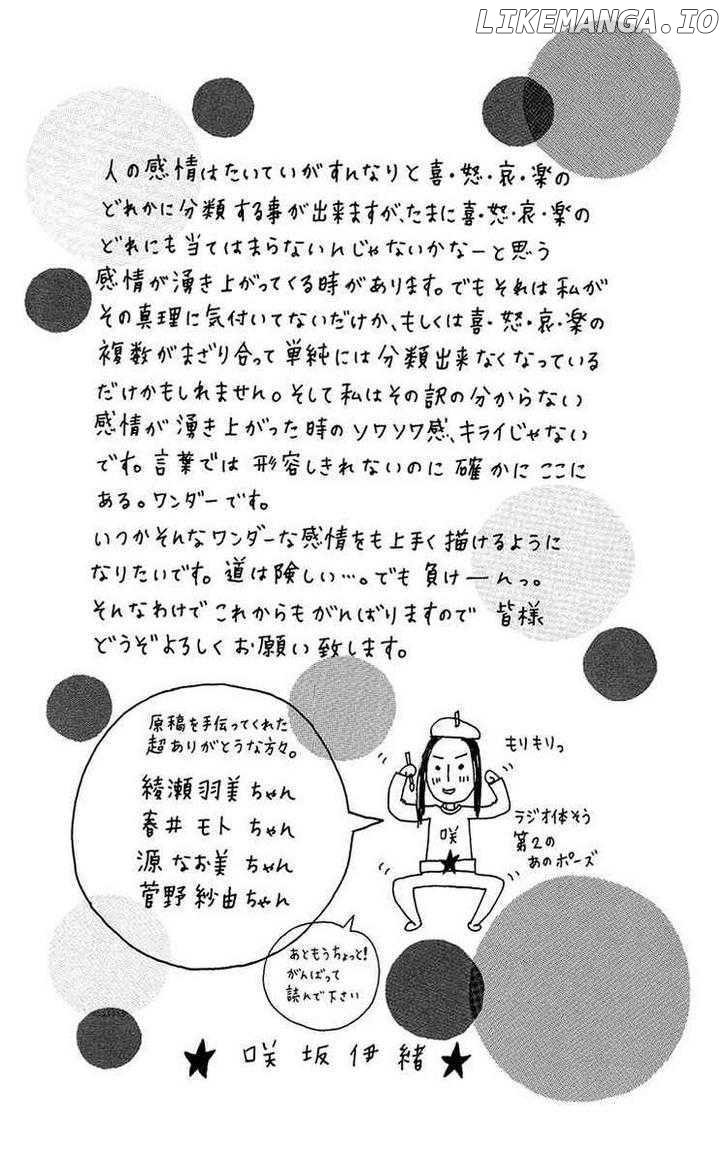 LIKEMANGA.IO
人の感情はたいていがすんなりと喜・怒・哀・楽の
どれかに分類する事が出来ますが、たまに喜・怒・哀・楽の
どれにも当てはまらないんじゃないかなーと思う
感情が湧き上がってくる時があります。でもそれは私が
その真理に気付いてないだけか、もしくは喜・怒・哀・楽の
複数がまざり合って単純には分類出来なくなっている
だけかもしれません。そして私はその訳の分からない
感情が湧き上がった時のソワソワ感、キライじゃない
です。言葉では形容しきれないのに確かにここに
ある。ワンダーです。
いつかそんなワンダーな感情をも上手く描けるように
なりたいです。道は険しい…。でも負けーんっ。
そんなわけでこれからもがんばりますので皆様
どうぞよろしくお願い致します。
原稿を手伝ってくれた
超ありがとうな方々。
綾瀬羽美ちゃん
春井モトちゃん
源なお美ちゃん
菅野紗由ちゃん
もりもりっ
咲
ラジオ体そう
第2の
あのポーズ
あともうちょっと!
がんばって
読んで下さい
★咲坂伊緒★